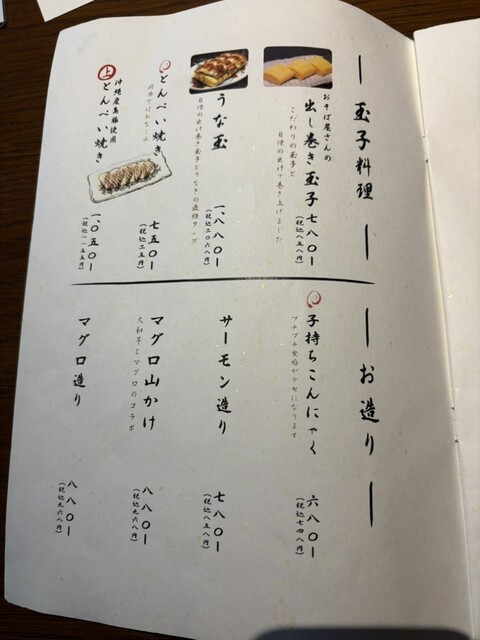 玉子料理
おそば屋さんの
出し巻き玉子
こだわりの玉子と
自慢の出汁で巻き上げました
七八〇ー
(税込八五八円)
うな玉
自慢の出汁巻き玉子とうなぎの最強タッグ
一、八八〇ー
(税込二〇六八円)
とんぺい焼き
七五〇ー
上
沖縄産島豚使用
とんぺい焼き
一、〇五〇ー
(税込一一五五円)
お造り
子持ちこんにゃく
プチプチ食感がクセになります
六八〇ー
(税込七四八円)
サーモン造り
七八〇ー
(税込八五八円)
マグロ山かけ
大和芋とマグロのコラボ
八八〇ー
(税込九六八円)
マグロ造り
八八〇ー
(税込九六八円)